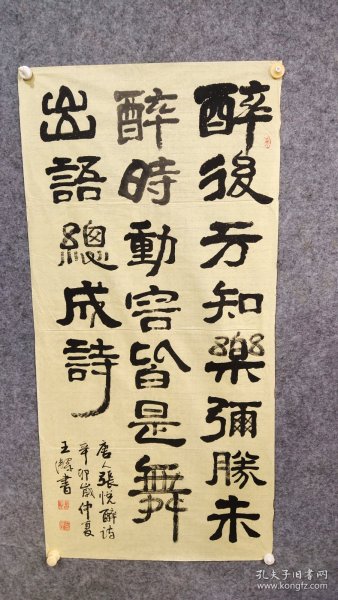 醉後方知樂彌勝未
醉時動容皆是舞
出語總成詩
唐人張悦醉詩
辛卯歲仲夏
王
書
孔夫子旧书网
www.kongfz.com